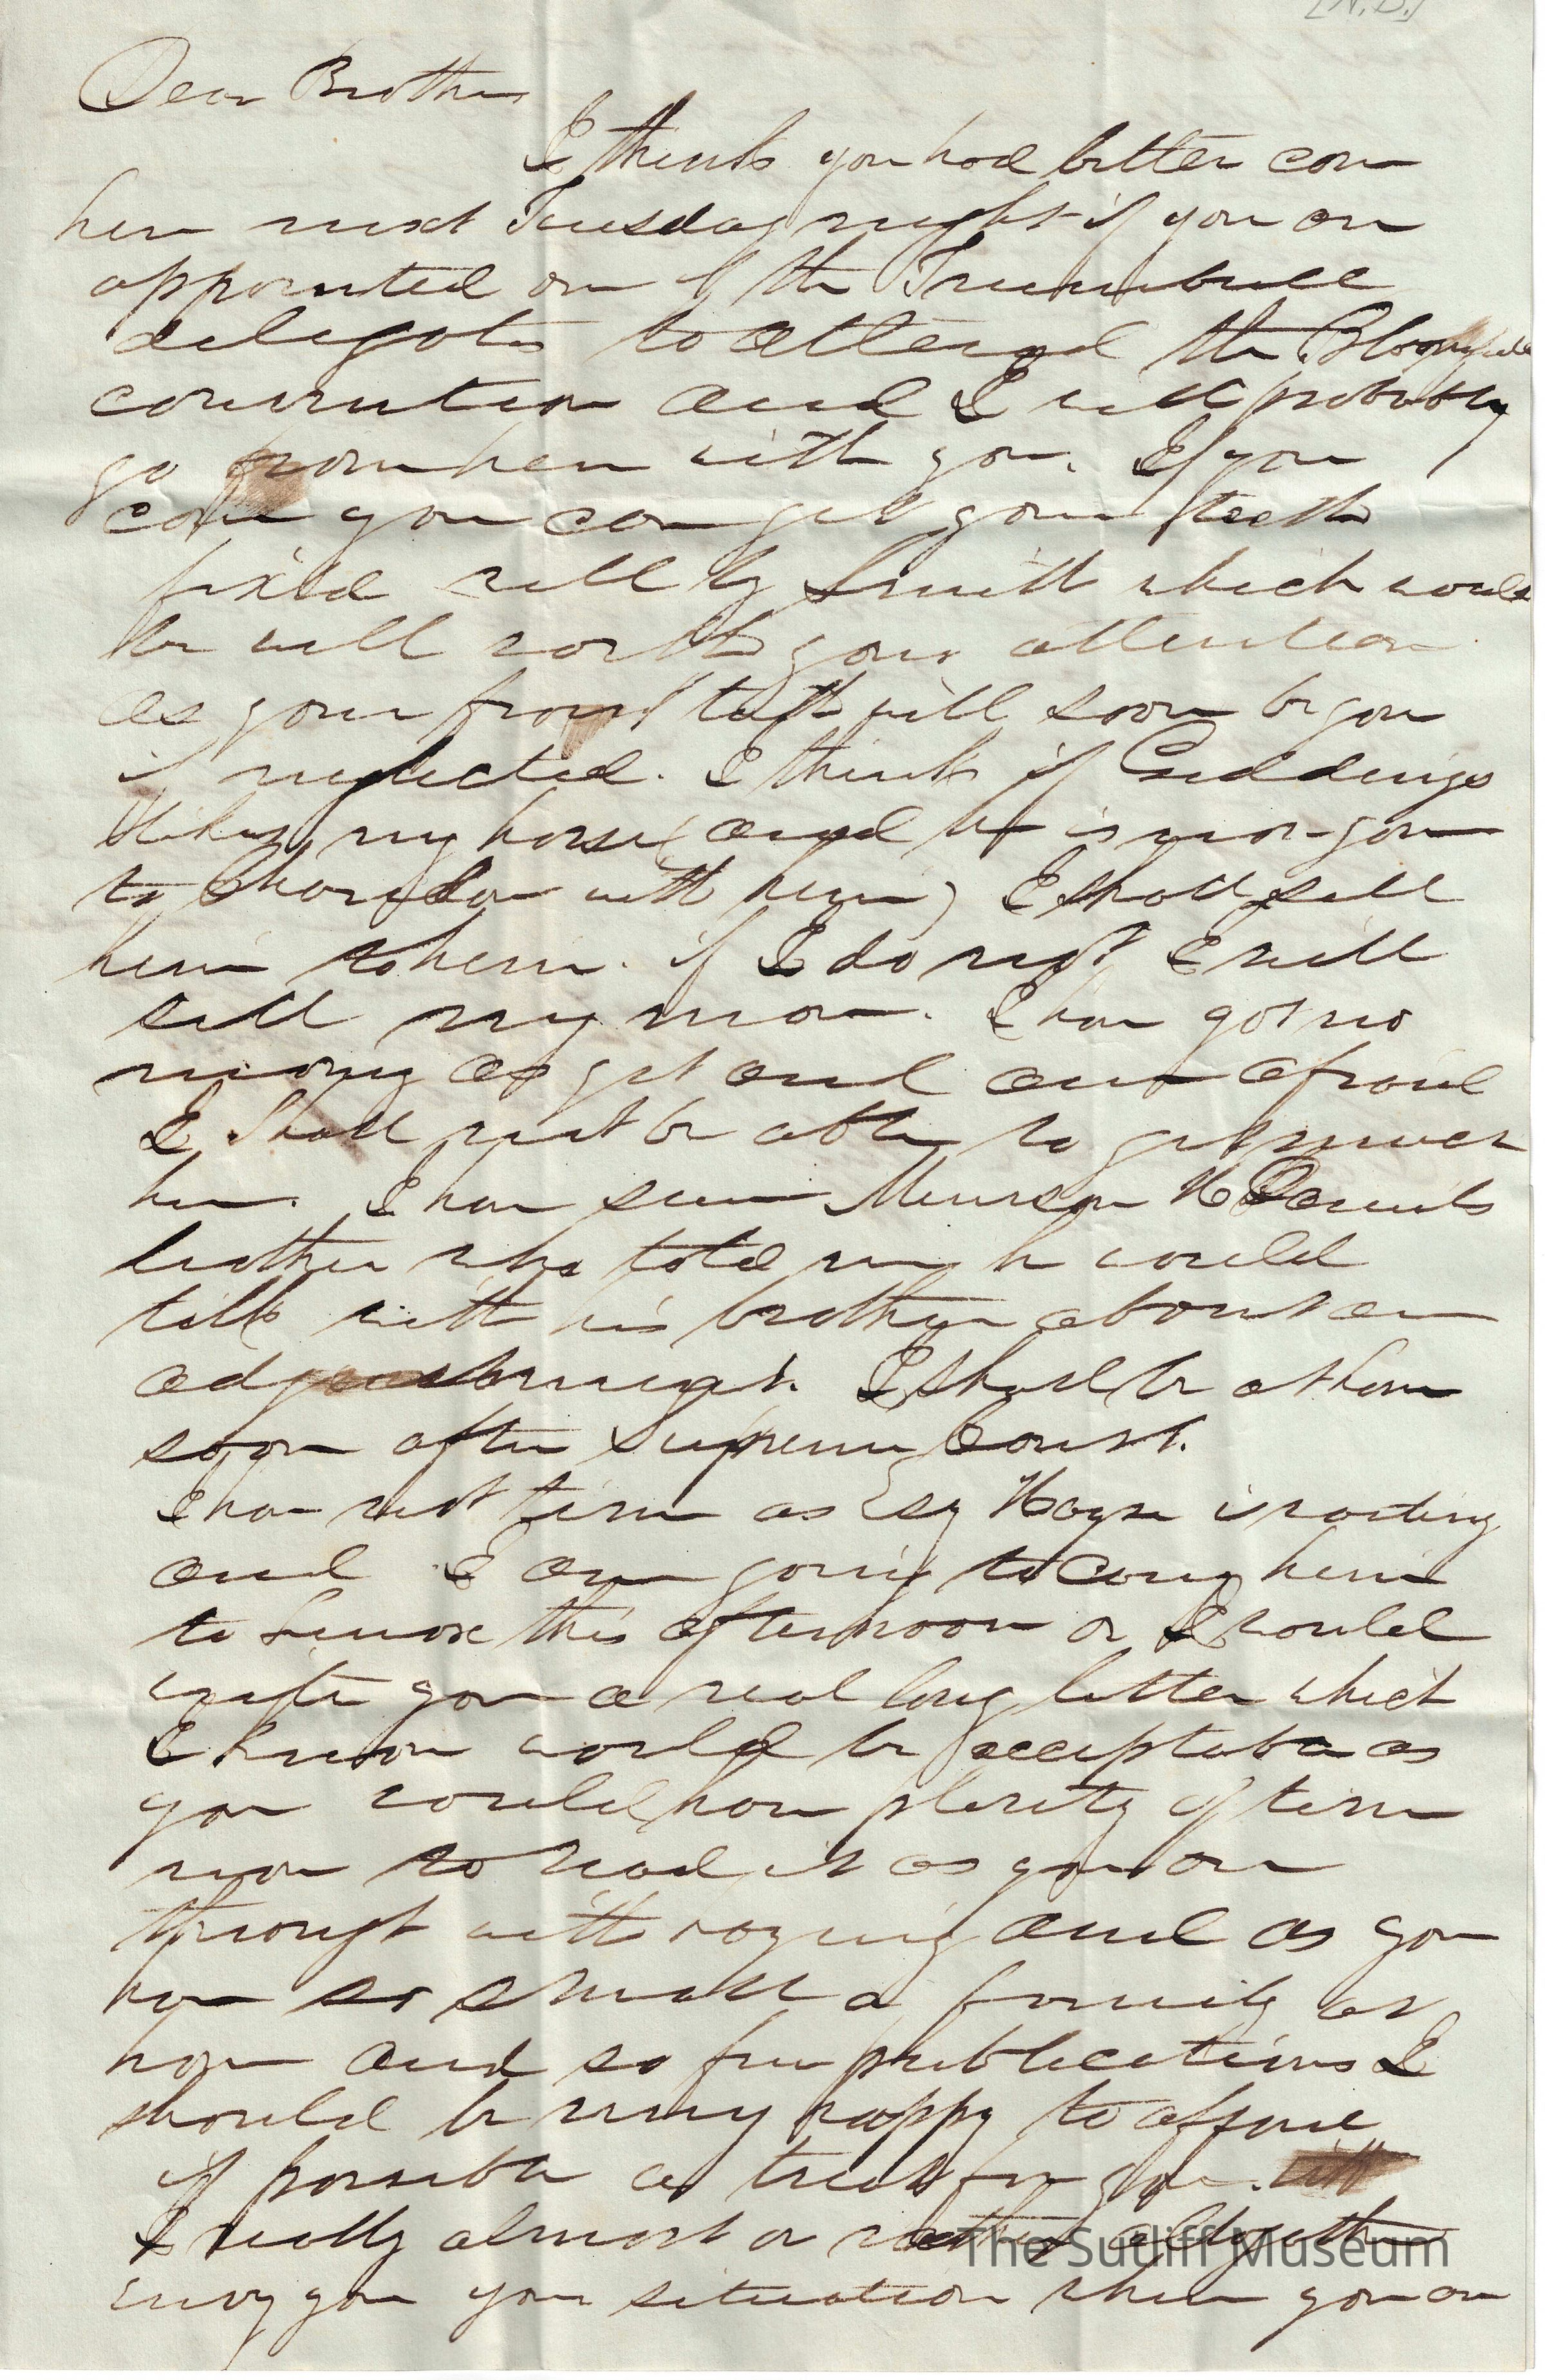 [N.D.]
Dear Brother
I think you had better come
here next Tuesday night if you are
appointed one of the Trumbull
delegates to attend the Bloomfield
convention and I will probably
go from here with you. If you
come you can get your teeth
fixed well by Smith which would
be well worth your attention
as your front teeth will soon be gon
if neglected. I think if Giddings
likes my horse (and he is now gone
to Chardon with him) I shall sell
him to him. if I do not I will
sell my mare. I have got no
money as yet and am afraid
I shall not be able to get much
here. I have seen Munson
brother who told me he would
talk with his brother about an
adjustment. I shall be at home
soon after Supreme Court.
I have not time as Esq is waiting
and I am going to carry him
to Lenox this afternoon or I would
write you a real long letter which
I know would be acceptable as
you would have plenty of time
now to read it as you are
through with and as you
have so small a family at
home and so few publications I
should be very happy to afford
if possible a treat for you.
I really almost or rather altogether
envy you your situation when you are
The Sutliff Museum